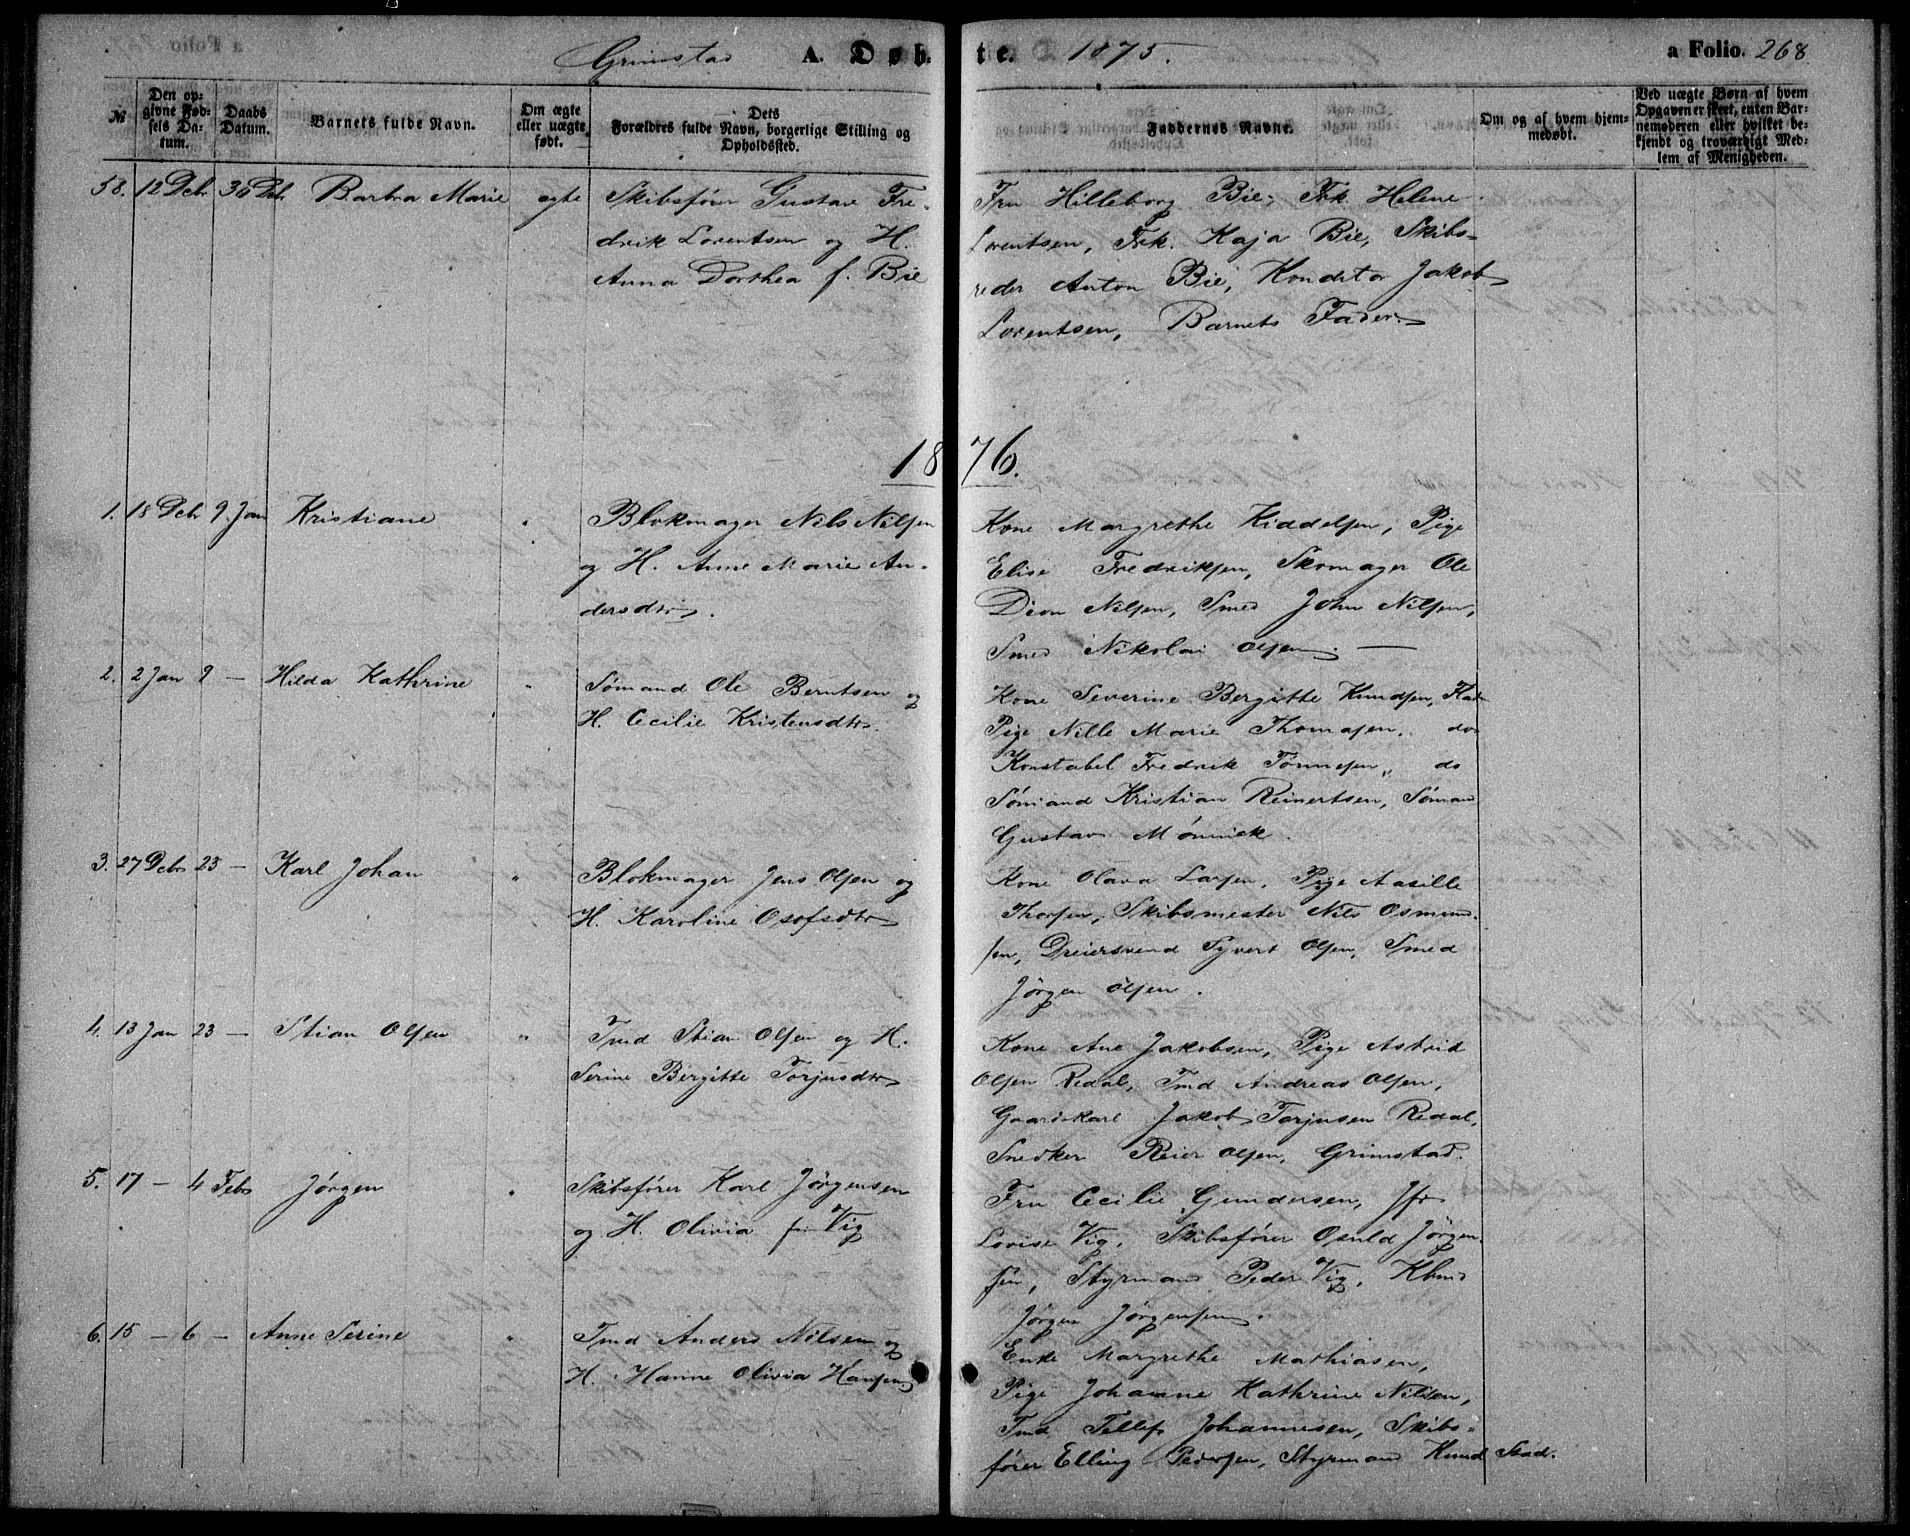 Grimstad A. Døbte. 1875. a Folio. 268
№
Den opgivne Fødsels Datum.
Daabs Datum.
Barnets fulde Navn.
Om ægte eller uægte født.
Dets Forældres fulde Navn, borgerlige Stilling og Opholdssted.
Faddernes Navne.
Om og af hvem hjemmedøbt.
Ved uægte Børn af hvem Opgaven er skeet, enten Barnemoderen eller hvilket bekjendt og troværdigt Medlem af Menigheden.
58. 12 Dcbr 30 Dcbr Barbra Marie ægte Skibsfører Gustav Fre-
drik Lorentsen og H.
Anna Dorthea f. Bie
Fru Hilleborg Bie, Frk. Helene
Lorentsen, Frk. Kaja Bie, Skibs-
reder Anton Bie, Konditor Jakob
Lorentsen, Barnets Fader.
1876.
1. 18 Dcbr 9. Jan Kristiane " Blokmager Nils Nilsen
og H. Anne Marie An-
dersdtr.
Kone Margrethe Kiddelsen, Pige
Elise Fredriksen, Skomager Ole
Dion Nilsen, Smed John Nilsen,
Smed Nikolai Olsen. —
2. 2 Jan 9 — Hilda Kathrine " Sømand Ole Berntsen og
H. Cecilie Kristensdtr.
Kone Severine Bergitte Knudsen,
Pige Nille Marie Thomasen, do
Konstabel Fredrik Tønnesen, do
Sømand Kristian Reinertsen, Sømand
Gustav Mønnick.
3. 27 Dcbr 23 — Karl Johan " Blokmager Jens Olsen og
H. Karoline Osofsdtr
Kone Olava Larsen, Pige Aasille
Thorsen, Skibsmester Nils Osmund-
sen, Dreiersvend Syvert Olsen, Smed
Jørgen Olsen.
4. 13 Jan 23 — Stian Olsen " Tmd Stian Olsen og H.
Serine Bergitte Torjusdtr
Kone Ane Jakobsen, Pige Astrid
Olsen Redal, Tmd Andreas Olsen,
Gaardskarl Jakob Torjusen Redal,
Snedker Reier Olsen, Grimstad.
5. 17 — 4 Febr Jørgen " Skibsfører Karl Jørgensen
og H. Olivia f. Vig
Fru Cecilie Gundersen, Jfr
Lovise Vig, Skibsfører Osuld Jørgen-
sen, Styrmand Peder Vig, Kbmd
Jørgen Jørgensen.
6. 15 — 6 — Anne Serine " Tmd Anders Nilsen og
H. Hanne Olivia Hansen
Enke Margrethe Mathiasen,
Pige Johanne Kathrine Nilsen,
Tmd Tellef Johannesen, Skibs-
fører Elling Pedersen, Styrmand Knud Stad.